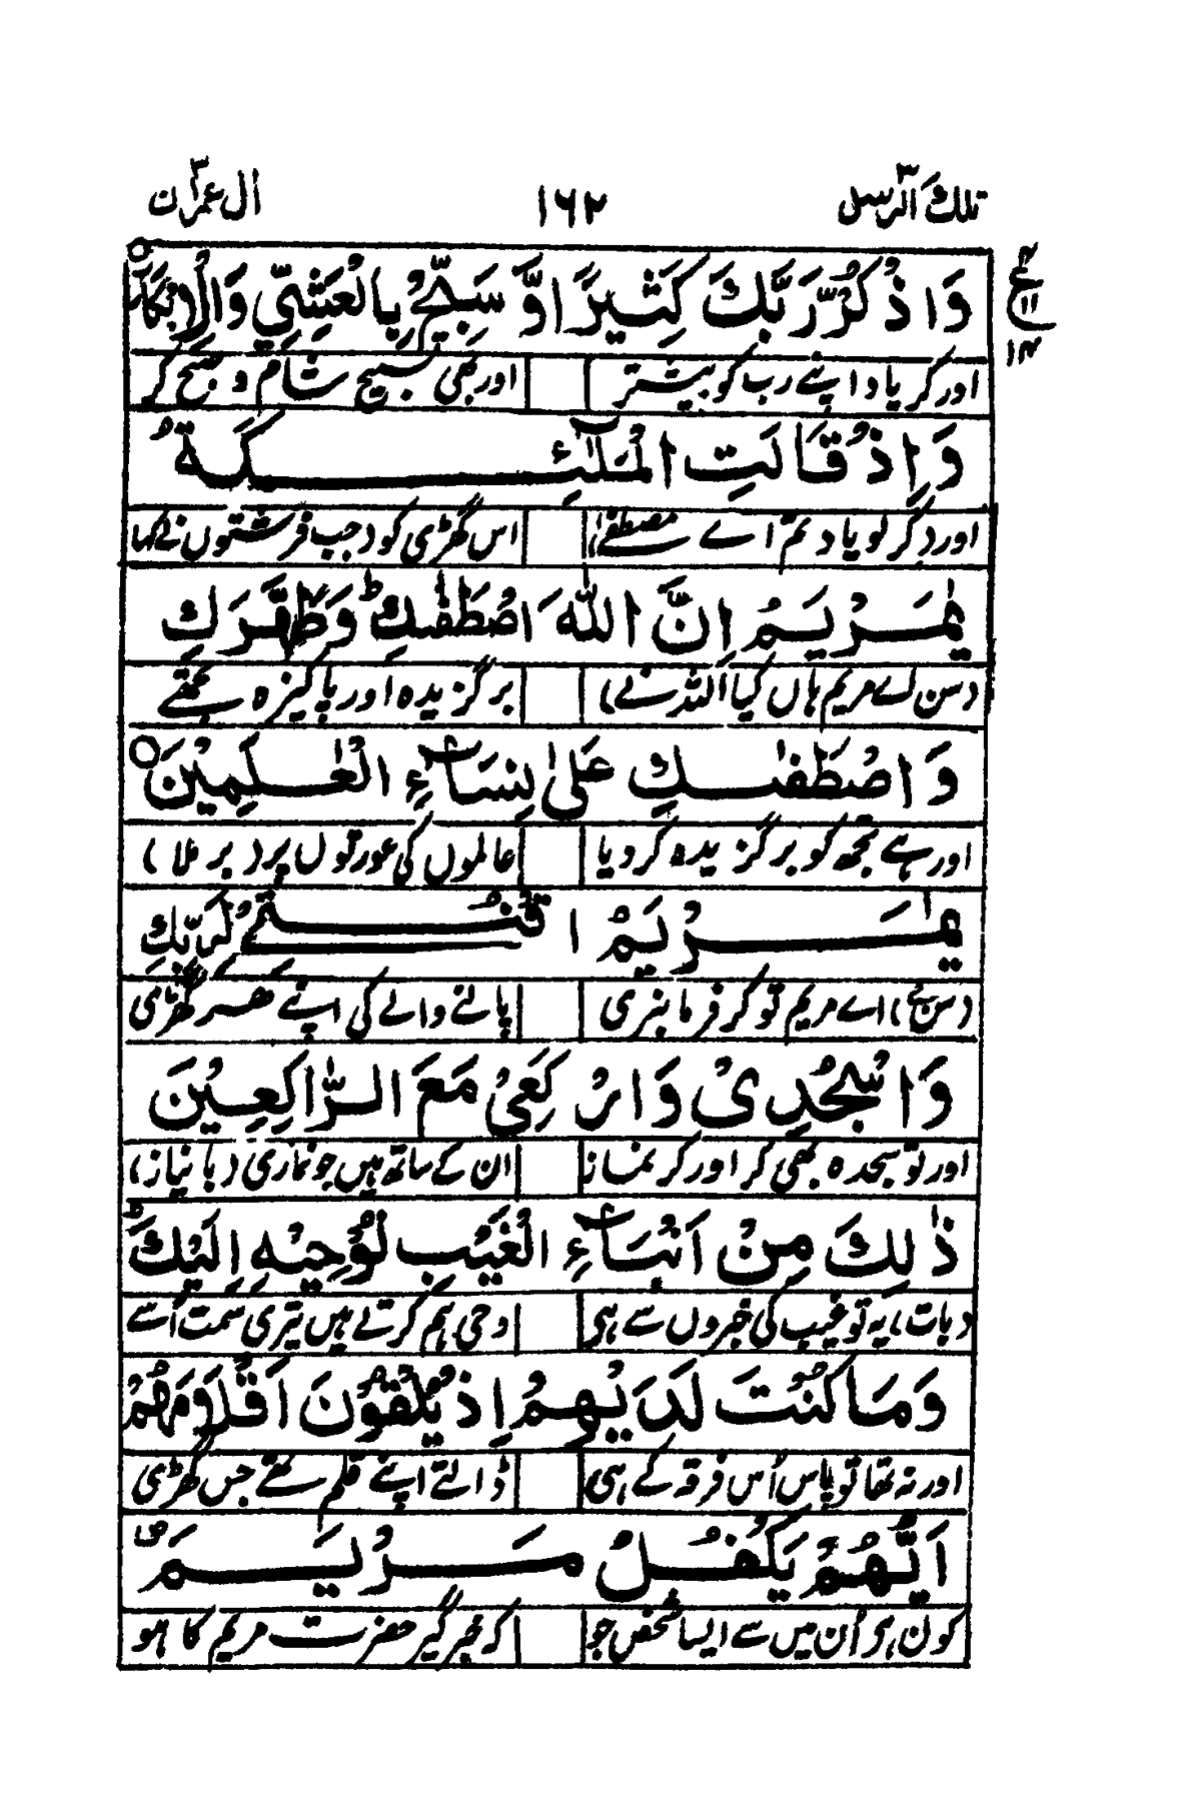 تلك الرسل ٣ ١٦٢ ال عمرٰن ٣
ع ٤ ١١ ١٢
وَاذْكُرْ رَّبَّكَ كَثِيْرًا وَّ سَبِّحْ بِالْعَشِيِّ وَالْاِبْكَارِ ○
اور کر یاد اپنے رب کو بیشتر اور بھی تسبیح شام و صبح کر
وَ اِذْ قَالَتِ الْمَلٰٓئِكَةُ
اور (کرلو یاد تم اے مصطفےٰ) اس گھڑی کو (جب فرشتوں نے کہا
يٰمَرْيَمُ اِنَّ اللّٰهَ اصْطَفٰىكِ وَطَهَّرَكِ
(سن لے مریم ہاں کیا اللہ نے) برگزیدہ اور پاکیزہ تجھے
وَاصْطَفٰىكِ عَلٰى نِسَآءِ الْعٰلَمِيْنَ ○
اور ہے تجھ کو برگزیدہ کر دیا عالموں کی عورتوں پر (بر ملا)
يٰمَرْيَمُ اقْنُتِيْ لِرَبِّكِ
(سن) اے مریم تو کر فرمانبری پالنے والے کی اپنے ہر گھڑی
وَاسْجُدِيْ وَارْكَعِيْ مَعَ الرّٰكِعِيْنَ
اور تو سجدہ بھی کر اور کر نماز ان کے ساتھ ہیں جو نمازی (با نیاز)
ذٰلِكَ مِنْ اَنْبَآءِ الْغَيْبِ نُوْحِيْهِ اِلَيْكَ ؕ
(بات) یہ تو غیب کی خبروں سے ہی وحی ہم کرتے ہیں تیری سمت اُسے
وَمَا كُنْتَ لَدَيْهِمْ اِذْ يُلْقُوْنَ اَقْلَامَهُمْ
اور نہ تھا تو پاس اُس فرقہ کے ہی ڈالتے اپنے قلم تھے جس گھڑی
اَيُّهُمْ يَكْفُلُ مَرْيَمَ ۪
کون ہی اُن میں سے ایسا شخص جو کہ خبرگیر حضرت مریم کا ہو